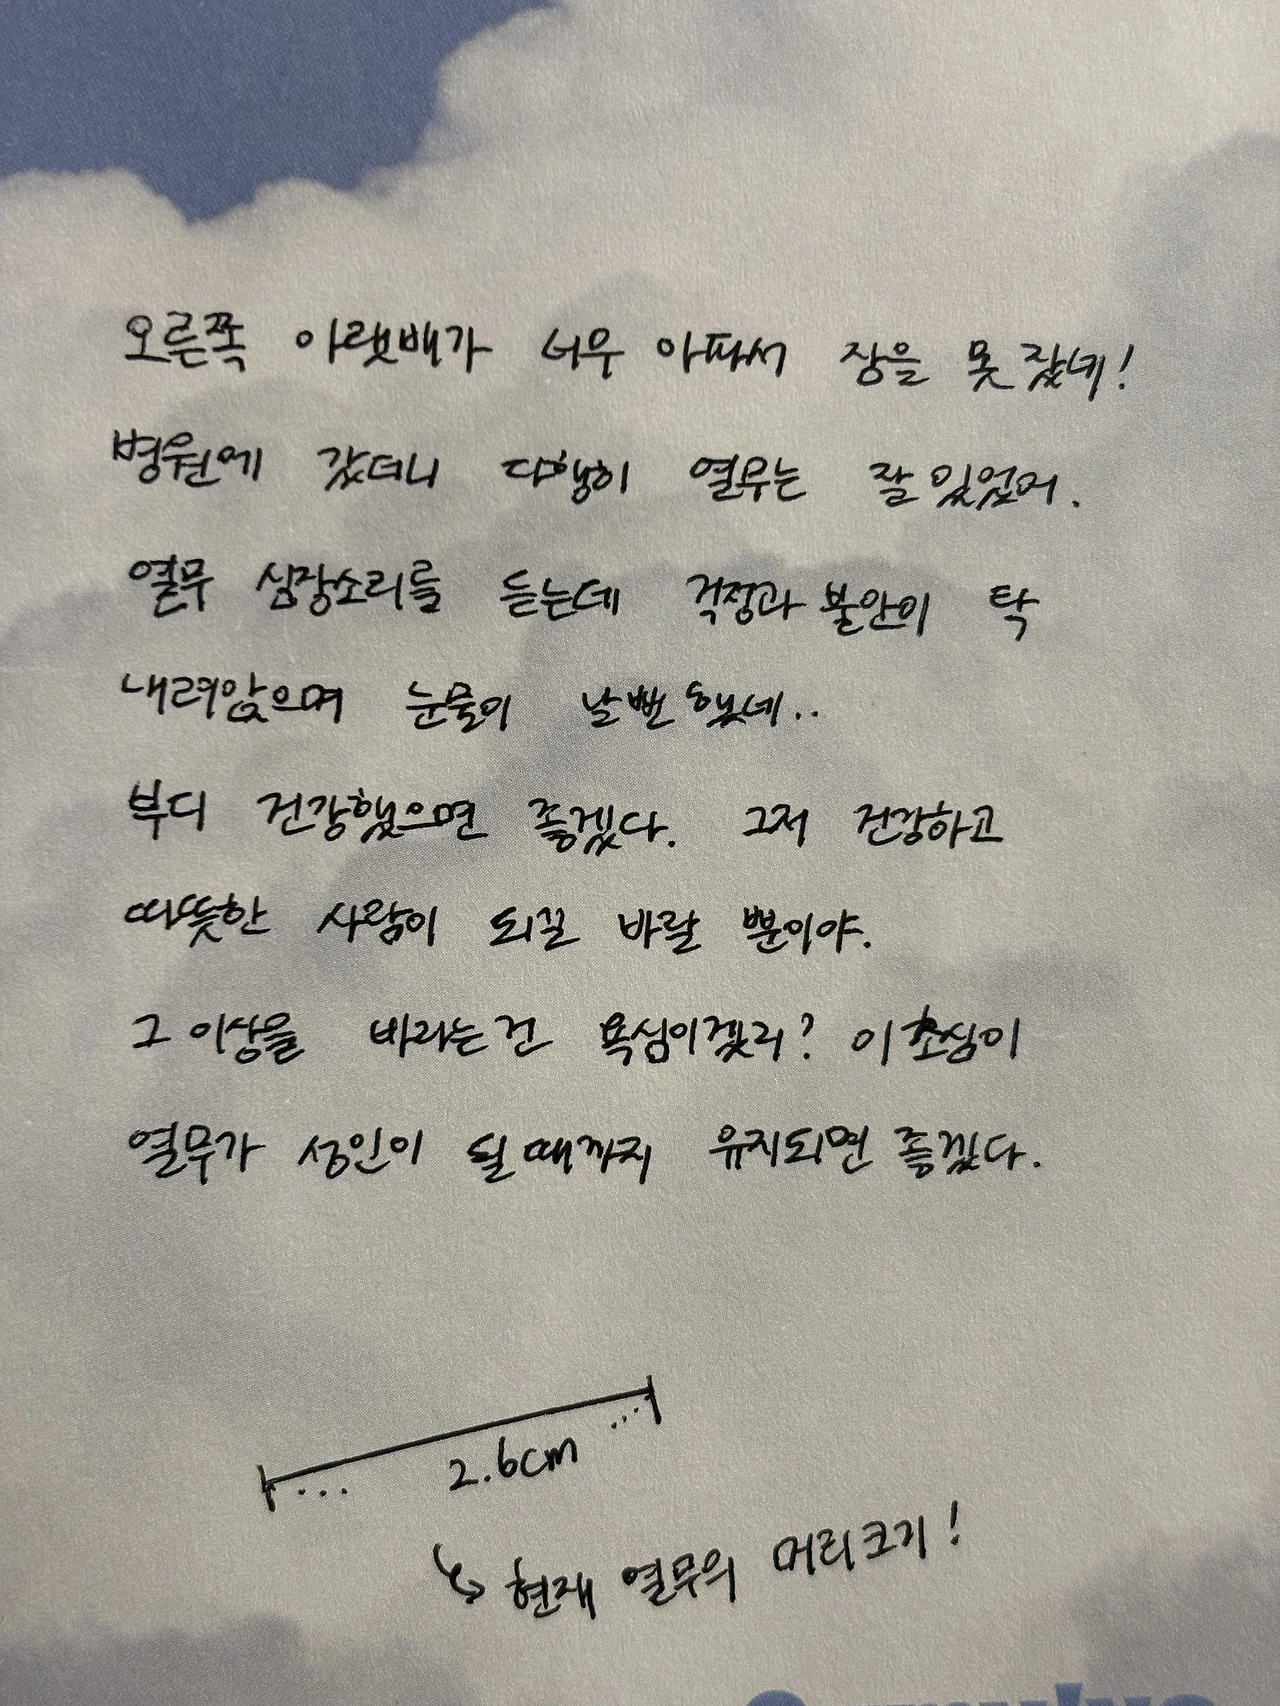 오른쪽 아랫배가 너무 아파서 잠을 못 잤네!
병원에 갔더니 다행히 열무는 잘 있었어.
열무 심장소리를 듣는데 걱정과 불안이 탁
내려앉으며 눈물이 날뻔 했네..
부디 건강했으면 좋겠다. 그저 건강하고
따뜻한 사람이 되길 바랄 뿐이야.
그 이상을 바라는건 욕심이겠지? 이 초심이
열무가 성인이 될 때까지 유지되면 좋겠다.
2.6cm
현재 열무의 머리크기!